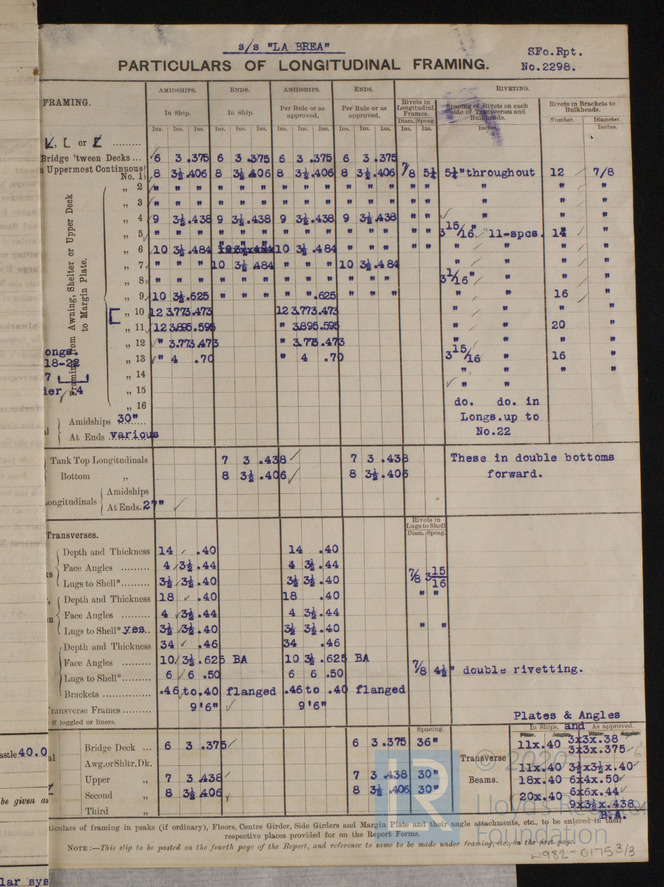 s/s "LA BREA"
SFo.Rpt.
No.2298.
PARTICULARS OF LONGITUDINAL FRAMING.
FRAMING. AMIDSHIPS. ENDS. AMIDSHIPS. ENDS. RIVETING.
In Ship. In Ship. Per Rule or as approved. Per Rule or as approved. Rivets in Longitudinal Frames. Spacing of Rivets on each side of Transverses and Bulkheads. Rivets in Brackets to Bulkheads.
Ins. Ins. Ins. Ins. Ins. Ins. Ins. Ins. Ins. Ins. Ins. Ins. Diam. Ins. Spcng. Ins. Inches. Number. Diameter Inches.
or
Bridge 'tween Decks ... 6 3 .375 6 3 .375 6 3 .375 6 3 .375
Uppermost Continuous No. 1 8 3½ .406 8 3½ .406 8 3½ .406 8 3½ .406 7/8 5¼ 5¼"throughout 12 7/8
" 2 " " " " " " " " " " " " " " " " " "
" 3 " " " " " " " " " " " " " " " " " "
" 4 9 3½ .438 9 3½ .438 9 3½ .438 9 3½ .438 " " " " "
" 5 " " " " " " " " " " " " " " 3 15/16" 11-spcs. 14 "
" 6 10 3½ .484 10 3½ .484 " " " " "
" 7 " " " 10 3½ .484 " " " 10 3½ .484 " " " " " "
" 8 " " " " " " " " " " " " " " 3 1/16" " " "
" 9 10 3½ .625 " " " " " .625 " " " " " " " 16 "
Framing from Awning, Shelter or Upper Deck to Margin Plate.
" 10 12 3.773 .473 12 3.773 .473 " " " "
" 11 12 3.895 .595 " 3.895 .595 " " 20 "
" 12 " 3.773 .473 " 3.773 .473 " " " "
" 13 " 4 .70 " 4 .70 3 15/16 " 16 "
" 14 " " " "
" 15 " "
" 16 do. do. in
Longs. up to
No.22
Amidships 30"
At Ends various
Tank Top Longitudinals 7 3 .438 7 3 .438 These in double bottoms
Bottom " 8 3½ .406 8 3½ .406 forward.
Longitudinals Amidships
At Ends 27"
Transverses. Rivets in Lugs to Shell Diam. Spcng.
Depth and Thickness 14 .40 14 .40
Face Angles ......... 4 3½ .44 4 3½ .44
Lugs to Shell* ....... 3½ 3½ .40 3½ 3½ .40 7/8 3 15/16
Depth and Thickness 18 .40 18 .40 " "
Face Angles ......... 4 3½ .44 4 3½ .44
Lugs to Shell* yes 3½ 3½ .40 3½ 3½ .40 " "
Depth and Thickness 34 .46 34 .46
Face Angles ......... 10 3½ .625 BA 10 3½ .625 BA 7/8 4½" double rivetting.
Lugs to Shell* ....... 6 6 .50 6 6 .50
Brackets ............ .46 to .40 flanged .46 to .40 flanged
Transverse Frames ........ 9'6" 9'6"
if joggled or liners.
Plates & Angles
and
Spacing. In Ships. As approved.
Bridge Deck ... 6 3 .375 6 3 .375 36" Transverse Beams. 11x.40 3x3x.38
3x3x.375
Awg.or Shltr. Dk. 11x.40 3½x3½x.40
Upper " 7 3 .438 7 3 .438 30" 18x.40 6x4x.50
Second " 8 3½ .406 8 3½ .406 30" 20x.40 6x6x.44
Third " 9x3½x.438
B.A.
Particulars of framing in peaks (if ordinary), Floors, Centre Girder, Side Girders and Margin Plate and their angle attachments, etc., to be entered in their
respective places provided for on the Report Forms.
NOTE:—This slip to be pasted on the fourth page of the Report, and reference to same to be made under framing, etc., on the first page.
© 2020
Lloyd's Register
Foundation
W982-0175 3/3
18-22
40.0
be given as
lar sys